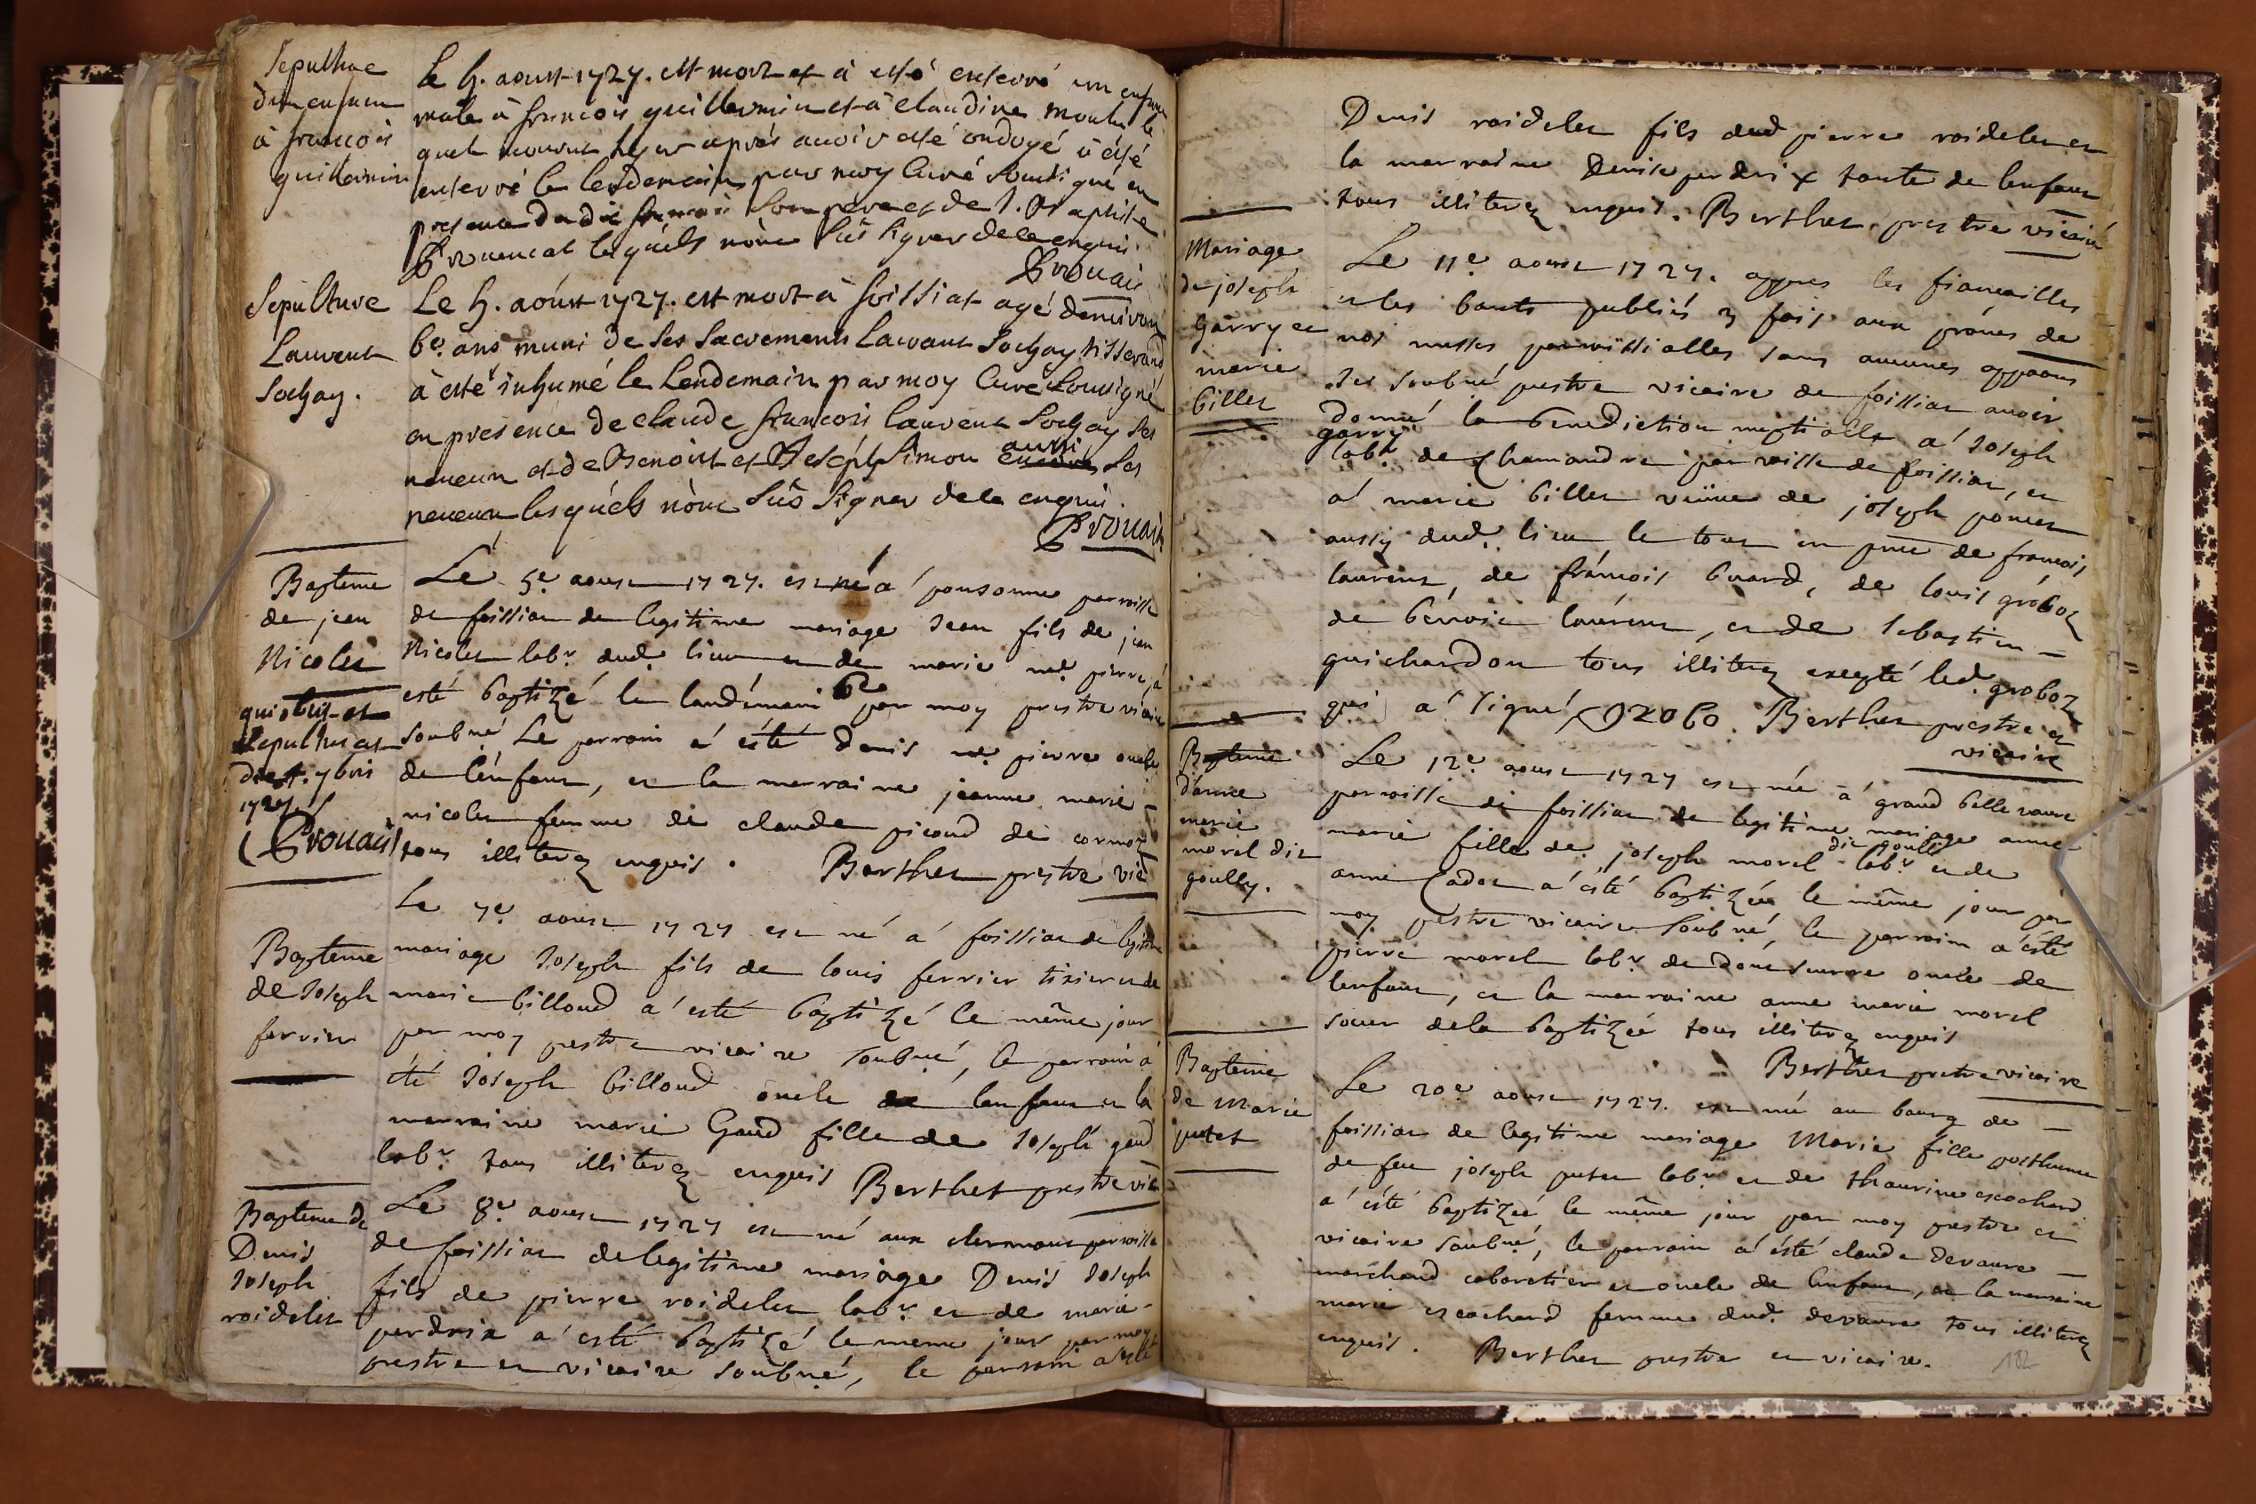 Sepulture
d'un enfant
à françois
guillermin
Le 4. aoust 1727. est mort et à esté enterré un enfant
male à françois guillermin et à claudine le
quel mourut hyer après avoir esté ondoyé à esté
enterré le lendemain par moy Curé soussigné en
presence du dit françois son pere et de J. Baptiste
Provencat lesquels n'ont sus signer de ce enquis.
Provait
Sepulture
Laurent
Sochay.
Le 4. aoust 1727. est mort à foissiat agé denviron
60. ans muni de ses sacrements Laurant Sochay tisserand
à esté inhumé le Lendemain par moy Curé soussigné
en presence de claude françois laurent Sochay ses
neveux et de Benoist et Joseph Simon aussi ses
neveux lesquels n'ont sus signer de ce enquis.
Provait
Bapteme
de jean
Nicolet
qui obiit et
sepultus est
die 7. 7bris
1727
Provait
Le 5e. aoust 1727. est né a ponsonne parroisse
de foissiat de legitime mariage Jean fils de jean
Nicolet labr. dud. lieu et de marie pierre, a
esté baptizé le landemain 6e par moy prestre vicaire
soubné, Le parrain a esté denis pierre oncle
de l'enfant, et la marraine jeanne marie -
nicolet femme de claude picoud de cormoz
tous illiterez enquis. Berthet prestre vic
Bapteme
de Joseph
ferrier
Le 7e. aoust 1727 est né a foissiat de legitime
mariage Joseph fils de louis ferrier tixier et de
marie billoud a esté baptizé le même jour
par moy prestre vicaire soubné, le parrain a
été Joseph billoud oncle de l'enfant et la
marraine marie Gaud fille de Joseph gaud
labr. tous illiterez enquis Berthet prestre vic
Bapteme de
Denis
Joseph
roidelet
Le 8e. aoust 1727 est né aux clermont parroisse
de foissiat de legitime mariage Denis Joseph
fils de pierre roidelet labr. et de marie -
perdrix a esté baptizé le meme jour par moy
prestre et vicaire soubné, le parrain a esté
Denis roidelet fils dud pierre roidelet et
la marraine Denise perdrix tante de lenfant
tous illiterez enquis. Berthet prestre vicaire
Mariage
de joseph
garry et
marie
billet
Le 11e aoust 1727. appres les fiançailles
et les bants publiés 3 fois aux prônes de
nos messes parroissialles sans aucunes oppaons
Je soubné prestre vicaire de foissiat avoir
donné la benediction nuptialle a Joseph
garry
labr. de chamandre parroisse de foissiat, et
a marie billet veüve de joseph poncet
aussy dud. lieu le tout en pnce de francois
laurent, de françois buard, de louis groboz
de benoist laurent, et de sebastien -
guichardon tous illiterez excepté led. groboz
qui a signé grobo. Berthet prestre et
vicaire
Bapteme
d'anne
marie
morel dit
goully.
Le 12e. aoust 1727 est née a grand bellevavre
parroisse de foissiat de legitime mariage anne
marie fille de joseph morel dit goully labr. et de
anne cadet a esté baptizée le même jour par
moy prestre vicaire soubné, le parrain a esté
pierre morel labr. de oncle de
lenfant, et la marraine anne marie morel
soeur de la baptizée tous illiterez enquis
Berthet prestre vicaire
Bapteme
de Marie
putet
Le 20e aoust 1727. est né au bourg de -
foissiat de legitime mariage Marie fille posthume
de feu joseph putet labr. et de thaurine escochard
a esté baptizée le même jour par moy prestre et
vicaire soubné, le parrain a esté claude devavre -
marchand cabaretier et oncle de lenfant, et la marraine
marie escochard femme dud. devavre tous illiterez
enquis. Berthet prestre et vicaire.
182